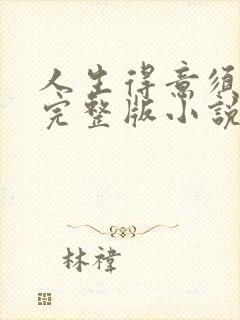 人生得意須
完整版小說
林禕